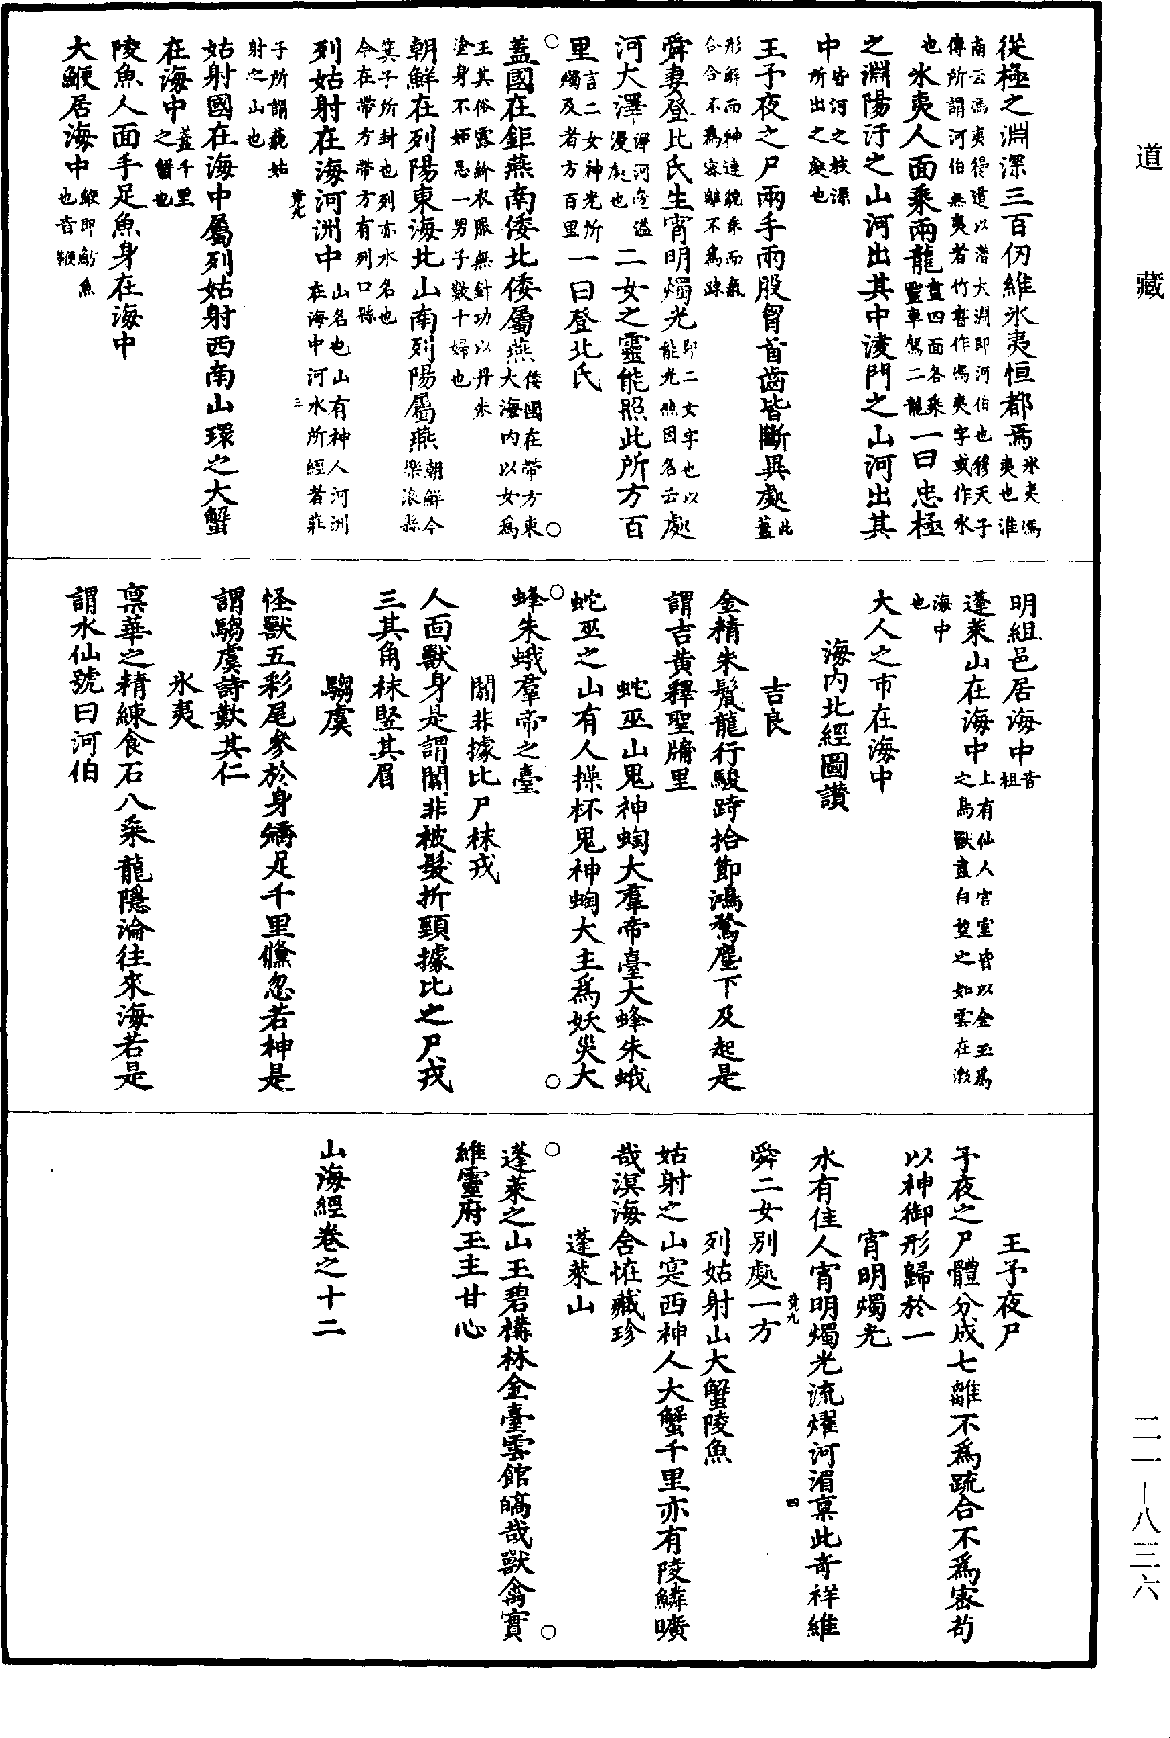 道藏
從極之淵深三百仞維氷夷恒都焉氷夷馮夷也淮
南云馮夷得道以潛大淵即河伯也穆天子
傳所謂河伯無夷者竹書作馮夷字或作氷
也氷夷人面乘兩龍畫四面各乘靈車駕二龍一曰忠極
之淵陽汙之山河出其中淩門之山河出其
中皆河之枝源所出之處也
王子夜之尸兩手兩股胷首齒皆斷異處此蓋
形解而神連貌乖而氣
合合不為密離不為疎
舜妻登比氏生宵明燭光即二女字也以能光照因名云處
河大澤澤河邊溢漫處也二女之靈能照此所方百
里言二女神光所燭及者方百里一曰登北氏
蓋國在鉅燕南倭北倭屬燕倭國在帶方東大海內以女為
王其俗露紒衣服無針功以丹朱
塗身不妬忌一男子數十婦也
朝鮮在列陽東海北山南列陽屬燕朝鮮今樂浪縣
箕子所封也列亦水名也
今在帶方帶方有列口縣
列姑射在海河洲中山名也山有神人河洲在海中河水所經者莊
竟九 三
子所謂藐姑
射之山也
姑射國在海中屬列姑射西南山環之大蟹
在海中蓋千里之蟹也
陵魚人面手足魚身在海中
大鯾居海中鯾即魴魚也音鞭
明組邑居海中音祖
蓬萊山在海中上有仙人宮室皆以金玉為之鳥獸盡白望之如雲在渤
海中
也
大人之市在海中
海內北經圖讚
吉良
金精朱鬣龍行駿跱拾節鴻驁塵下及起是
謂吉黃釋聖牖里
蛇巫山鬼神蜪犬羣帝臺大蜂朱蛾
蛇巫之山有人操杯鬼神蜪犬主為妖災大
蜂朱蛾羣帝之臺
闒非據比尸袜戎
人面獸身是謂闒非被髮折頸據比之尸戎
三其角袜豎其眉
騶虞
怪獸五彩尾參於身矯足千里儵忽若神是
謂騶虞詩歎其仁
氷夷
禀華之精練食石八乘龍隱淪往來海若是
謂水仙號曰河伯
王子夜尸
子夜之尸體分成七離不為疏合不為密茍
以神御形歸於一
宵明燭光
水有佳人宵明燭光流燿河湄禀此奇祥維
竟九 四
舜二女別處一方
列姑射山大蟹陵魚
姑射之山寔西神人大蟹千里亦有陵鱗曠
哉溟海含恠藏珍
蓬萊山
蓬萊之山玉碧構林金臺雲館皜哉獸禽實
維靈府玉主甘心
山海經卷之十二
二一—八三六